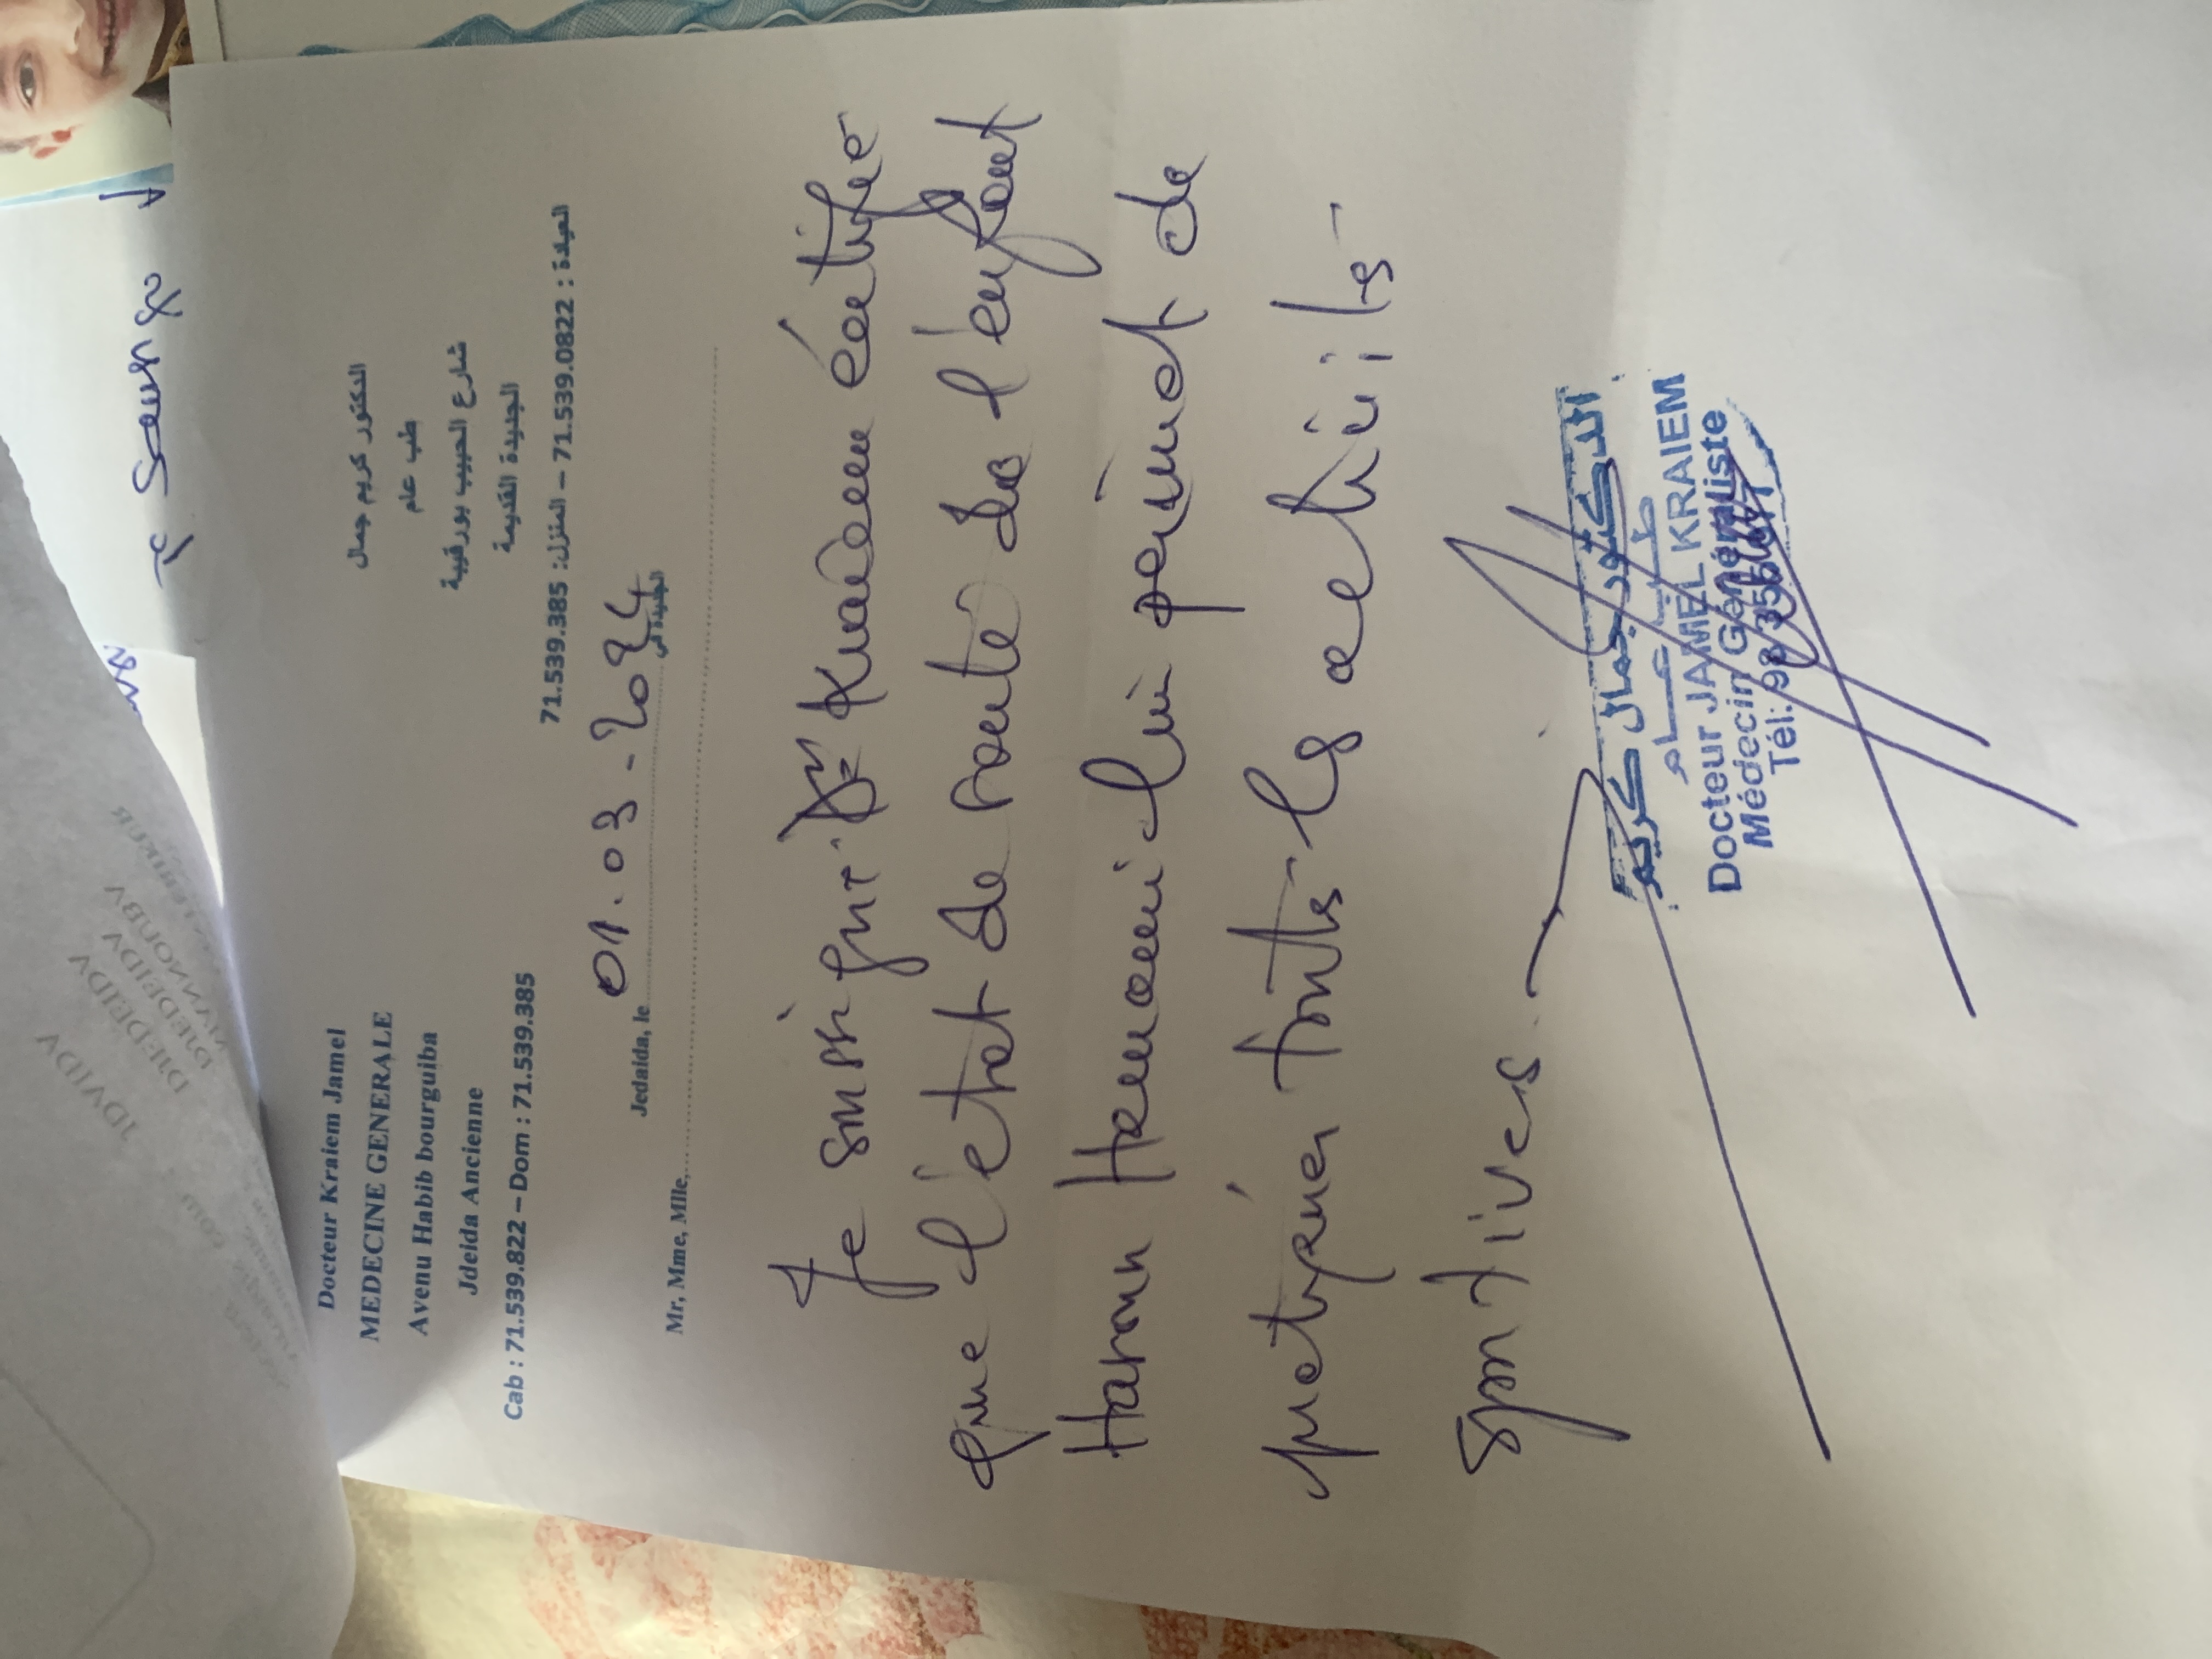 Docteur Kraiem Jamel
MEDECINE GENERALE
Avenu Habib bourguiba
Jdeida Ancienne
Cab : 71.539.822 – Dom : 71.539.385
الدكتور كريم جمال
طب عام
شارع الحبيب بورقيبة
الجديدة القديمة
العيادة : 71.539.0822 – المنزل: 71.539.385
Jedaida, le 01.03-2024 الجديدة في
Mr, Mme, Mlle,
Je soussigné Dr Kraiem certifie
que l'état de santé de l'enfant
Haroun Hammami lui permet de
pratiquer toutes les activités
sportives
الدكتور جمال كريم
طبيب عام
Docteur JAMEL KRAIEM
Médecin Généraliste
Tél: 98
JDAIDA
DJEDEIDA
DJEDEIDA
MANOUBA